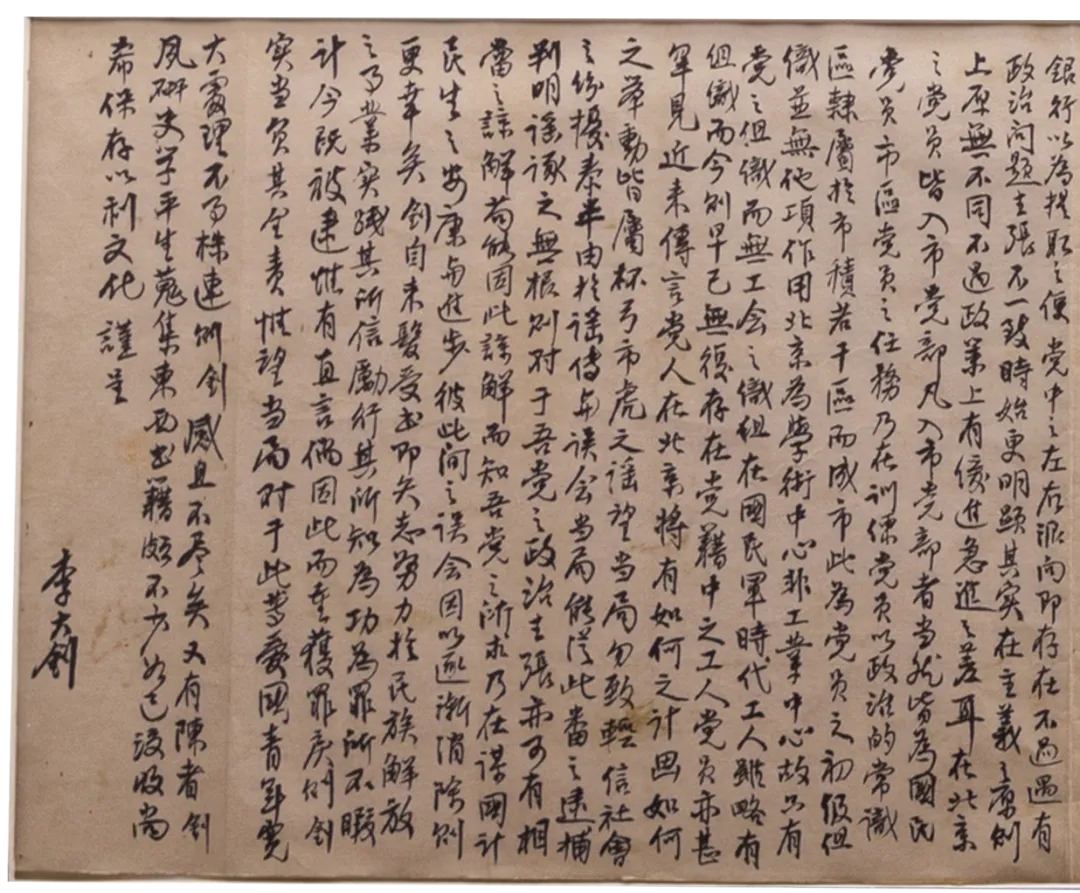 銀行以為提取之便党中之左右派向即存在不過遇有
政治问题主張不一致時始更明顕其实在主義之原則
上原無不同不過政策上有緩進急進之差耳在北京
之党員皆入市党部凡入市党部者当然皆為國民
党員市區党員之任務乃在训练党員以政治的常識
區隸屬於市積若干區而成市此為党員之初级组
織並無他項作用北京為學術中心非工業中心故只有
党之组織而無工会之織组在國民軍時代工人雖略有
组織而今則早已無復存在党籍中之工人党員亦甚
罕見近来傳言党人在北京将有如何之计画如何
之舉動皆屬杯弓市虎之谣望当局勿致輕信社會
之纷擾泰半由於谣传与误会当局能從此番之逮捕
判明谣诼之無根则对于吾党之政治主張亦可有相
當之諒解苟能因此諒解而知吾党之所求乃在謀國计
民生之安康与進步彼此间之误会因以逐漸消除则
更幸矣釗自束髮受书即矢志努力於民族解放
之事業实践其所信勵行其所知為功為罪所不暇
计今既被逮惟有直言倘因此而重獲罪戾则釗
实当负其全責惟望当局对于此等愛國青年宽
大處理不事株連则釗感且不尽矣又有陳者釗
夙研史学平生蒐集東西书籍頗不少如已没收尚
希保存以利文化謹呈
李大釗